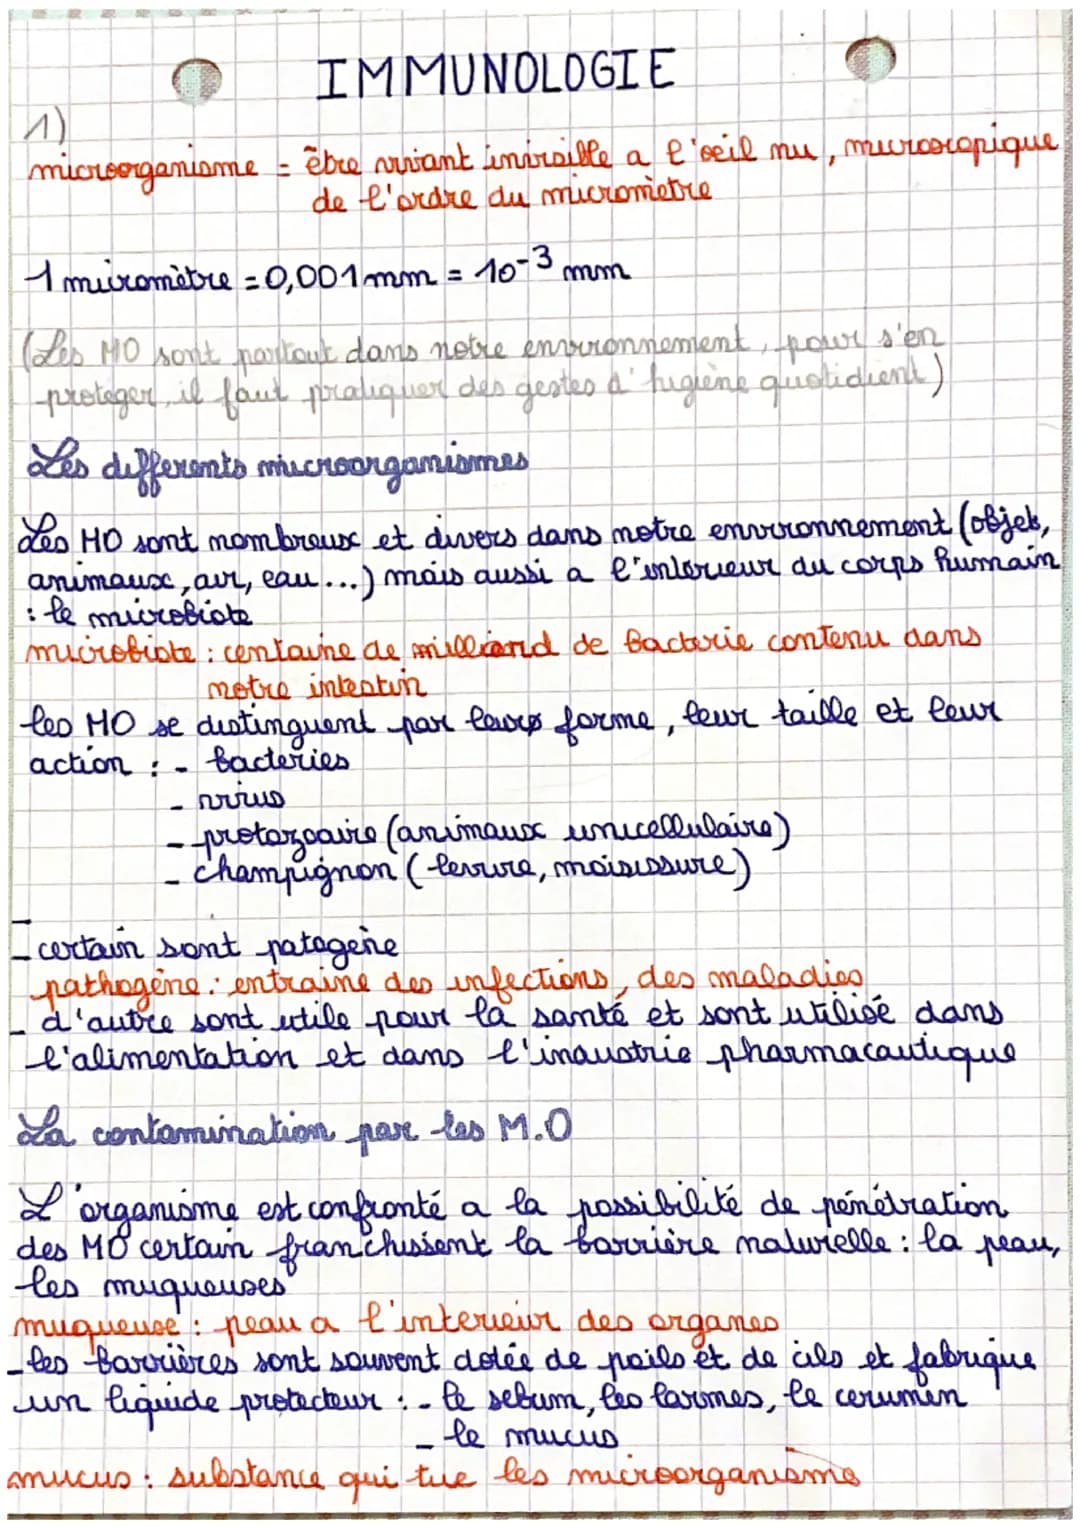 IMMUNOLOGIE
1)
microorganisme = être vivant invisible a l'oeil nu, microscopique
de l'ordre du micromètre
1 micromètre = 0,001 mm = 10⁻³ mm
(Les MO sont partout dans notre environnement, pour s'en
protéger, il faut pratiquer des gestes d'higiène quotidient)
Les differents microorganismes
Les MO sont nombreux et divers dans notre environnement (objet,
animaux, air, eau ...) mais aussi a l'intérieur du corps humain
: le microbiote
microbiote : centaine de milliard de bacterie contenu dans
notre intestin
les MO se distinguent par leurs forme, leur taille et leur
action : - bacteries
- virus
- protozoaire (animaux unicellulaire)
- champignon (levure, moisissure)
- certain sont patogène
pathogène : entraine des infections, des maladies
- d'autre sont utile pour la santé et sont utilisé dans
l'alimentation et dans l'industrie pharmacautique
La contamination par les M.O
L'organisme est confronté a la possibilité de pénétration
des MO certain franchissent la barrière naturelle : la peau,
les muqueuses
muqueuse : peau a l'interieur des organes
- les barrières sont souvent dotée de poils et de cils et fabrique
un liquide protecteur : - le sebum, les larmes, le cerumen
- le mucus
mucus : substance qui tue les microorganisms